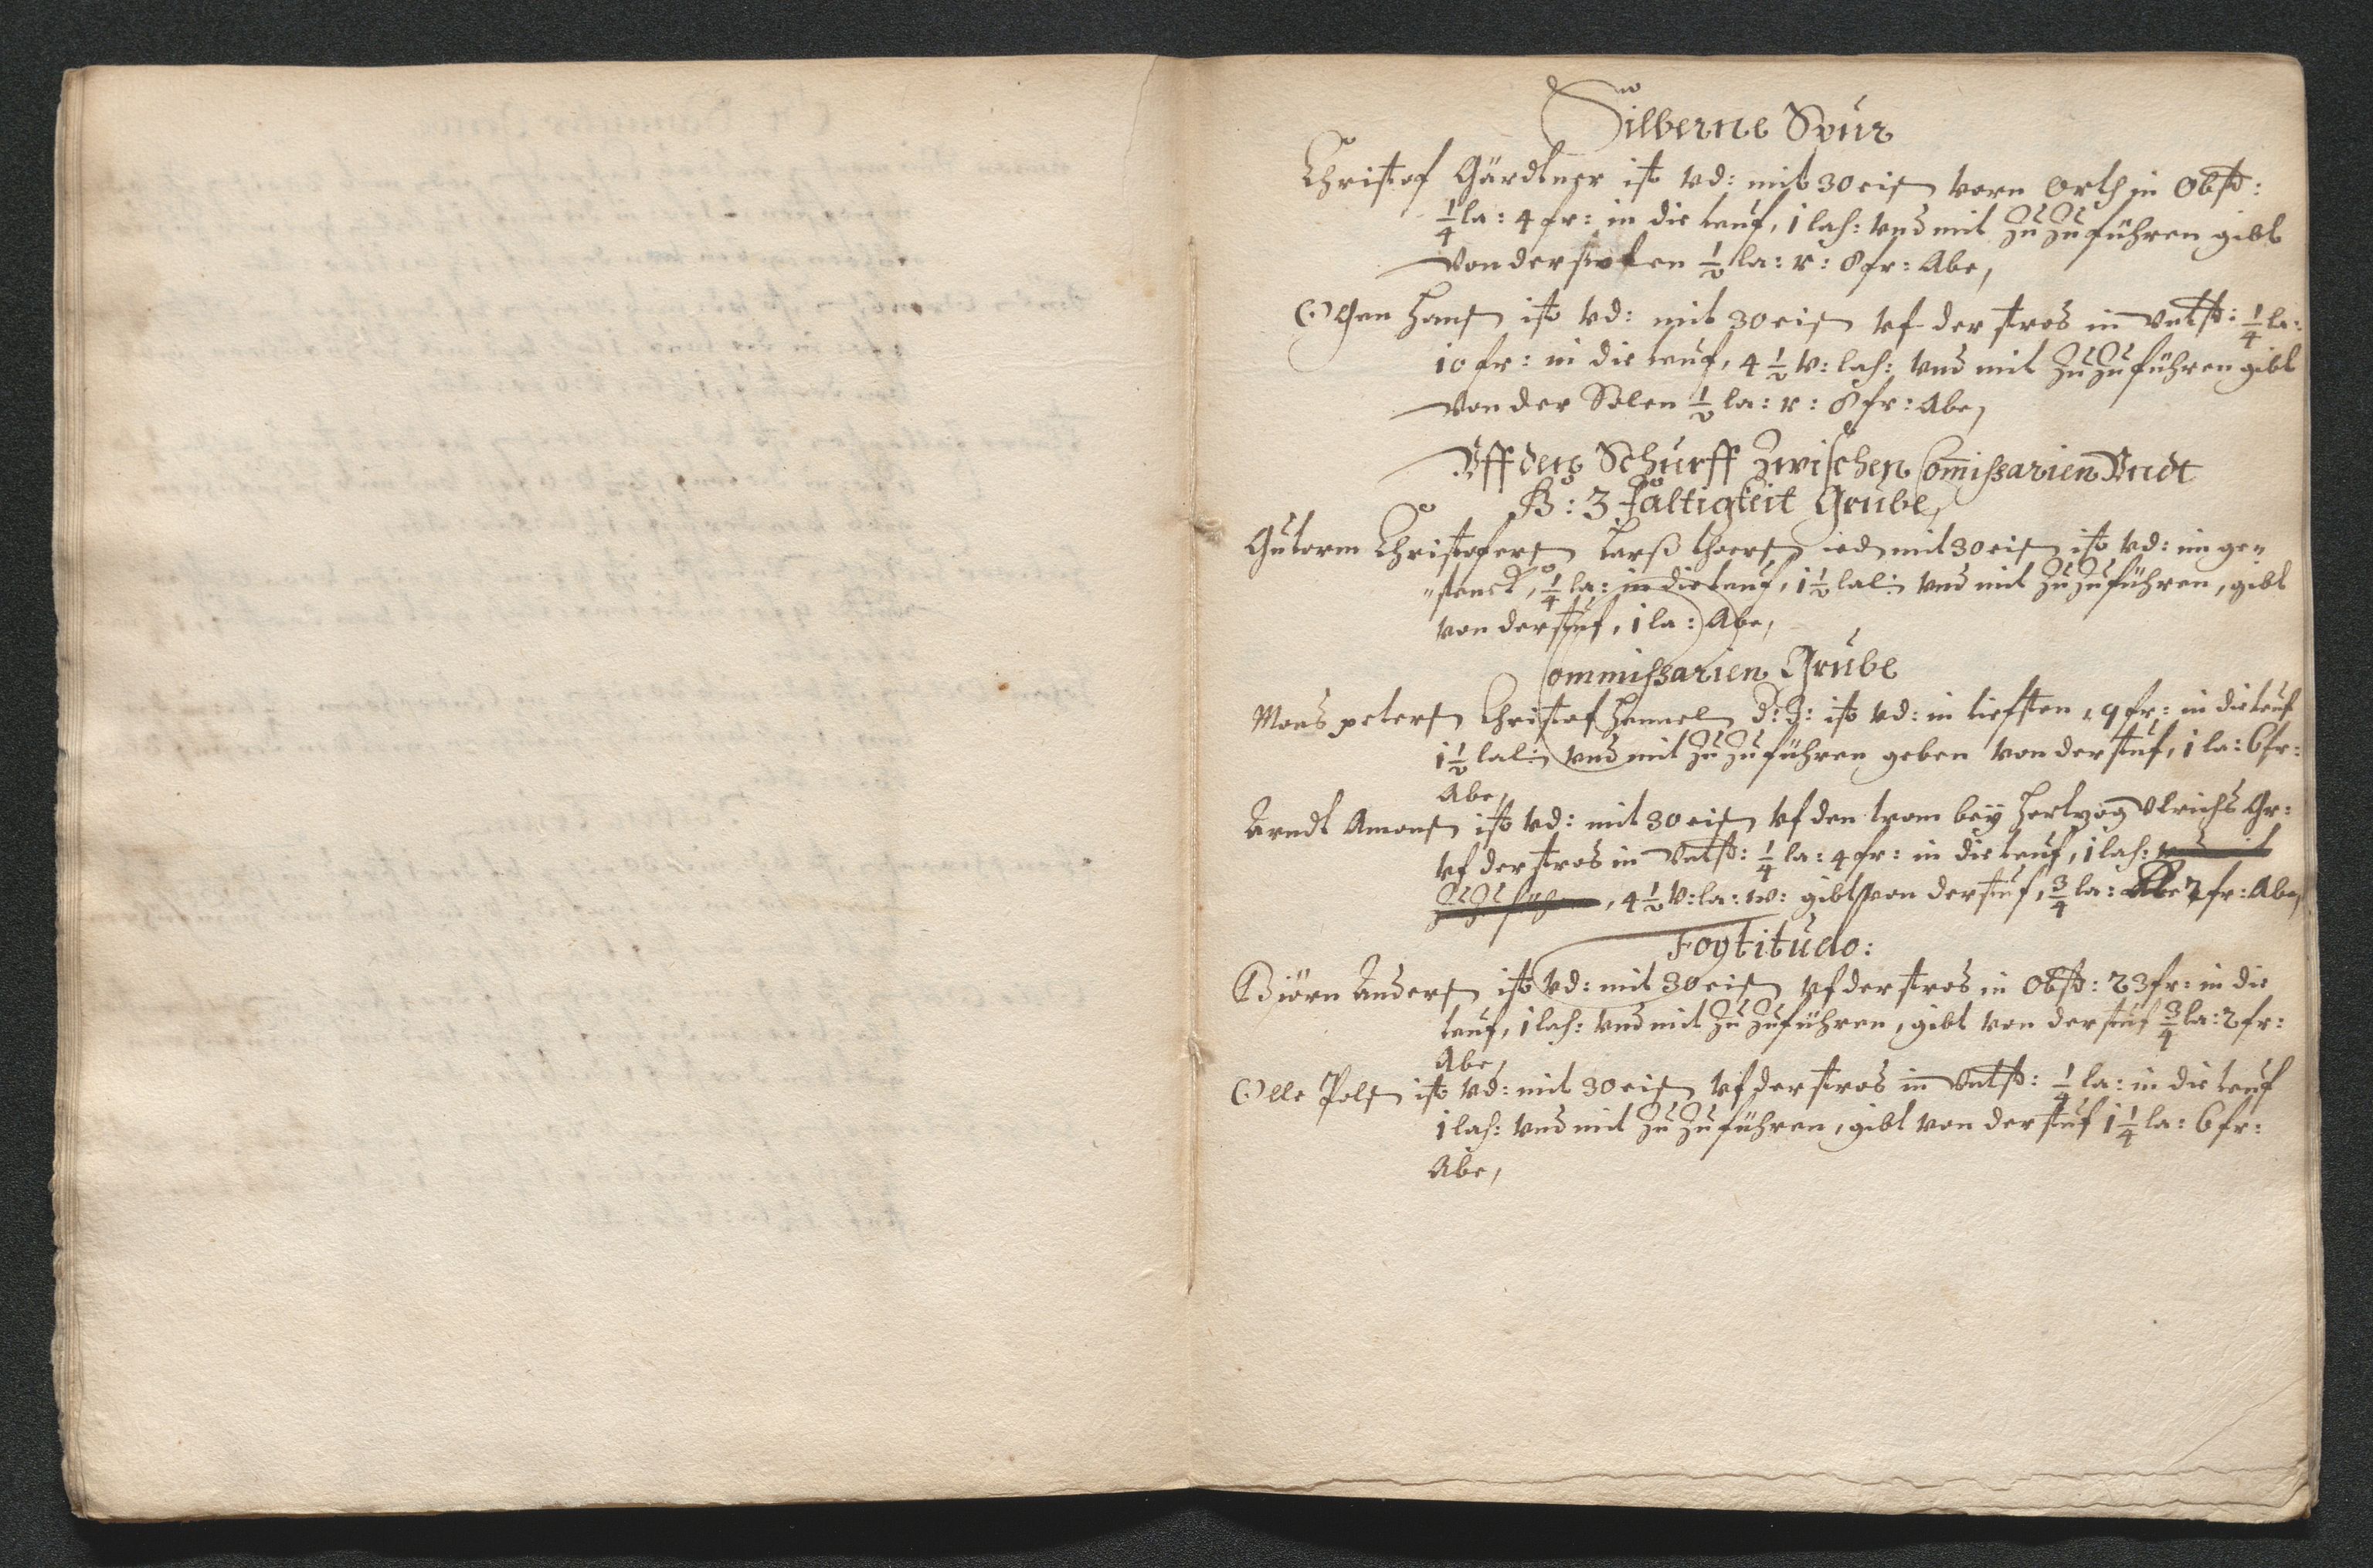 Silberne Spur
Christof Gärdtner ist vd: mit 30 eis vorn Orth in Obst:
1/4 la: 4 fr: in die teuf, 1 lah: vnd mit Zu Zu führen gibt
Von der stufen 1/2 la: r: 8 fr: Abe,
Olsen Hans ist vd: mit 30 eis vf der stros in Vntst: 1/4 la:
10 fr: in die teuf, 4 1/2 v: lah: vnd mit Zu Zu führen gibt
Von der Solen 1/2 la: r: 8 fr: Abe,
Vff den Schurff Zwischen Comissarien Vndt
H: 3 faltigkeit Grube,
Gutorm Christofers Lars thoers ied mit 30 eis ist vd: im ge„
„senck, 1/4 la: in die teuf, 1 1/2 lal: vnd mit Zu Zu führen, gibt
von der stuf, 1 la: Abe,
Commissarien Grube
Mons peters Christof Hemel d: J: ist vd: in tiefsten, 9 fr: in die teuf
1 1/2 lal: vnd mit Zu Zu führen geben von der stuf, 1 la: 6 fr:
Abe,
Arndt Amons ist vd: mit 30 eis vf den trom beÿ Hertzog Vlrichs Gr:
vf der stros in Vntst: 1/4 la: 4 fr: in die teuf, 1 lah: vnd mit
Zu Zu führen, 4 1/2 v: la: w: gibt von der stuf, 3/4 la: Abe 2 fr: Abe,
Fortitudo:
Biörn Anders ist vd: mit 30 eis vf der stros in Obst: 23 fr: in die
teuf, 1 lah: vnd mit Zu Zu führen, gibt von der stuf 3/4 la: 2 fr:
Abe,
Olle Pols ist vd: mit 30 eis vf der stros in Vntst: 1/4 la: in die teuf
1 lah: vnd mit Zu Zu führen, gibt von der stuf 1 1/4 la: 6 fr:
Abe,